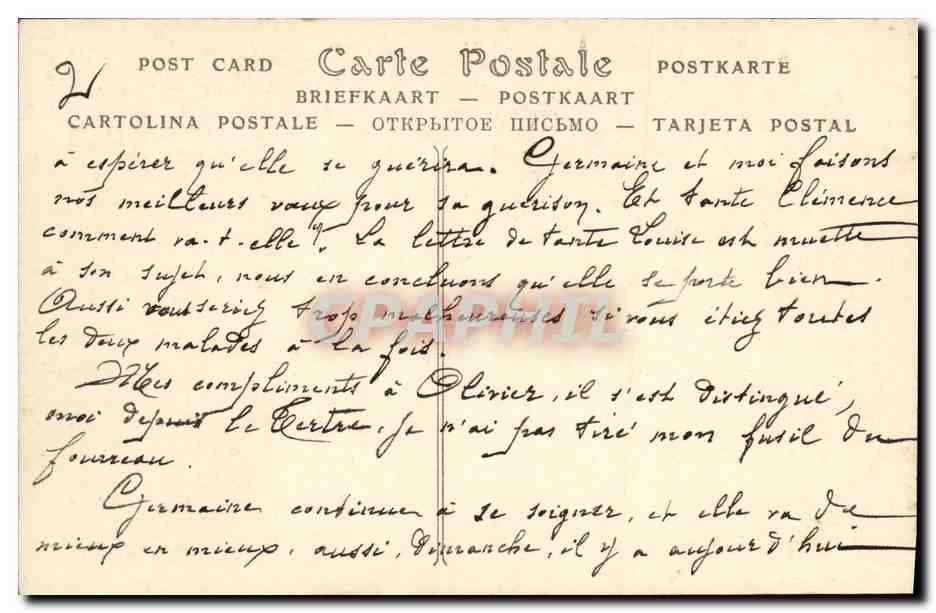 2
POST CARD Carte Postale POSTKARTE
BRIEFKAART — POSTKAART
CARTOLINA POSTALE — ОТКРЫТОЕ ПИСЬМО — TARJETA POSTAL
à espérer qu'elle se guérira. Germaine et moi faisons
nos meilleurs vœux pour sa guérison. Et tante Clémence
comment va-t-elle? La lettre de tante Louise est muette
à son sujet, nous en concluons qu'elle se porte bien.
Aussi vous seriez trop malheureuses si vous étiez toutes
les deux malades à la fois.
CPAPHIL
Mes compliments à Olivier, il s'est distingué,
moi depuis le Tertre, je n'ai pas tiré mon fusil du
fourreau.
Germaine continue à se soigner, et elle va de
mieux en mieux, aussi, dimanche, il y a aujourd'hui